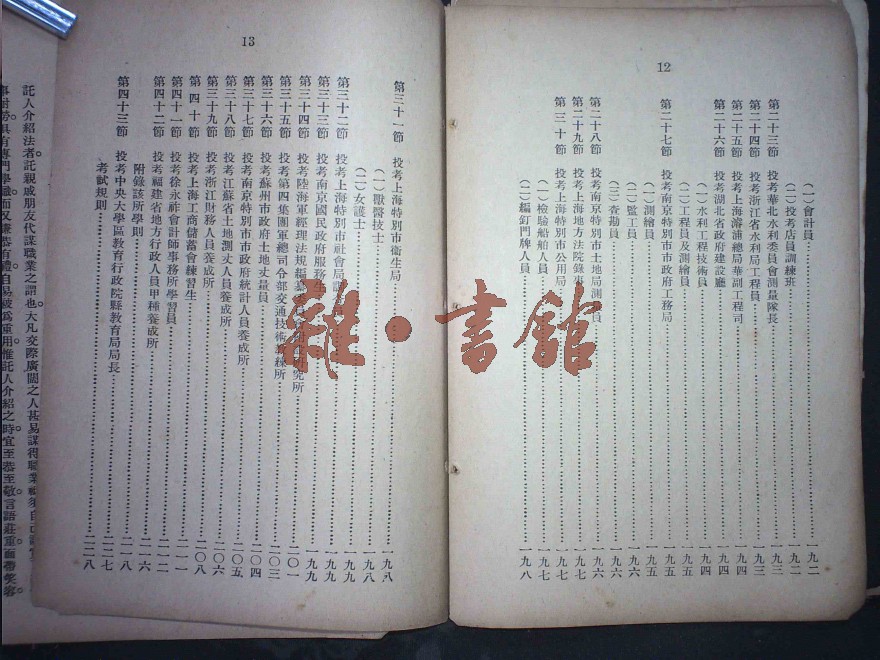 12
（一）會計員 一九二
（二）投考店員訓練班 一九二
第二十三節 投考華北水利委員會測量隊長 一九三
第二十四節 投考浙江省水利局工程員 一九三
第二十五節 投考上海濬浦總局華副工程司 一九四
第二十六節 投考湖北省政府建設廳 一九四
（一）水利工程技術員 一九四
第二十七節 投考南京特別市市政府工務局 一九五
（一）工程員及測繪員 一九五
（二）監工員 一九六
（三）查勘員 一九六
第二十八節 投考南京特別市土地局測 員 一九六
第二十九節 投考上海地方法院錄事 一九七
第三十節 投考上海特別市公用局 一九七
（一）檢驗船舶人員 一九七
（二）編釘門牌人員 一九八
13
第三十一節 投考上海特別市衛生局 一九八
（一）獸醫技士 一九八
（二）女護士 一九九
第三十二節 投考上海特別市社會局 一九九
第三十三節 投考南京國民政府服務生 一九九
第三十四節 投考陸海軍經理法規編 研究所 二〇一
第三十五節 投考第四集團軍總司令部交通技術 練所 二〇三
第三十六節 投考蘇州市政府土地丈量員 二〇四
第三十七節 投考南京特別市市政府統計人員養成所 二〇五
第三十八節 投考江蘇省土地測丈人員養成所 二〇六
第三十九節 投考浙江財務人員養成所 二〇八
第四十節 投考上海工商儲蓄會練習生
第四十一節 投考徐永祚會計師事務所學習員
第四十二節 投考福建省地方行政人員甲種養成所
附錄該所學則 二一六
第四十三節 投考中央大學區教育行政院縣教育局局長 二一八
考試規則 二二八
託人介紹法者。託親戚朋友代謀職業之謂也。大凡交際廣闊之人甚易謀得職業
門學識。而又謙恭有禮。自易被爲重用。惟託人介紹之時。宜至恭至敬。言語莊重。面帶笑容
雜·書館